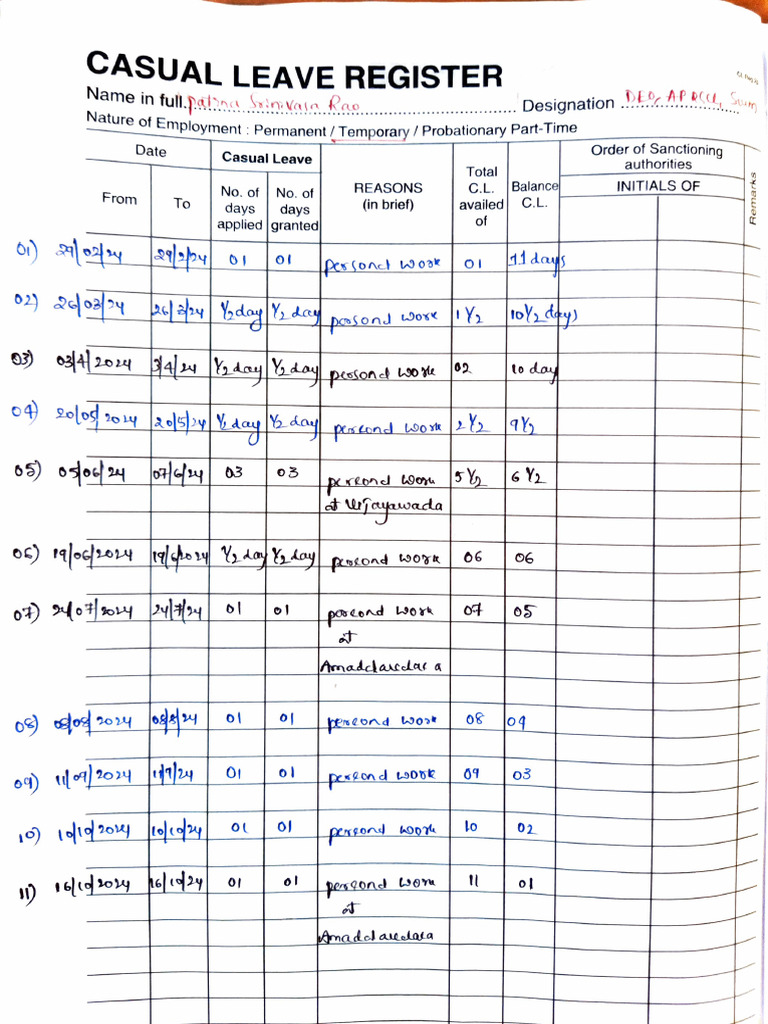 CASUAL LEAVE REGISTER
Name in full. Patina Srinivasa Rao Designation DEO, APBCL,
Nature of Employment : Permanent / Temporary / Probationary Part-Time
Date Casual Leave REASONS (in brief) Total C.L. availed of Balance C.L. Order of Sanctioning authorities Remarks
From To No. of days applied No. of days granted INITIALS OF
01) 29/02/24 29/2/24 01 01 personal work 01 11 days
02) 26/03/24 26/3/24 1/2 day 1/2 day personal work 1 1/2 10 1/2 days
03) 03/4/2024 3/4/24 1/2 day 1/2 day personal work 02 10 day
04) 20/05/2024 20/5/24 1/2 day 1/2 day personal work 2 1/2 9 1/2
05) 05/06/24 07/6/24 03 03 personal work 5 1/2 6 1/2
at Vijayawada
06) 19/06/2024 19/6/2024 1/2 day 1/2 day personal work 06 06
07) 24/07/2024 24/7/24 01 01 personal work 07 05
at
Amadalavalasa
08) 08/08/2024 08/8/24 01 01 personal work 08 04
09) 11/09/2024 11/9/24 01 01 personal work 09 03
10) 10/10/2024 10/10/24 01 01 personal work 10 02
11) 16/10/2024 16/10/24 01 01 personal work 11 01
at
Amadalavalasa